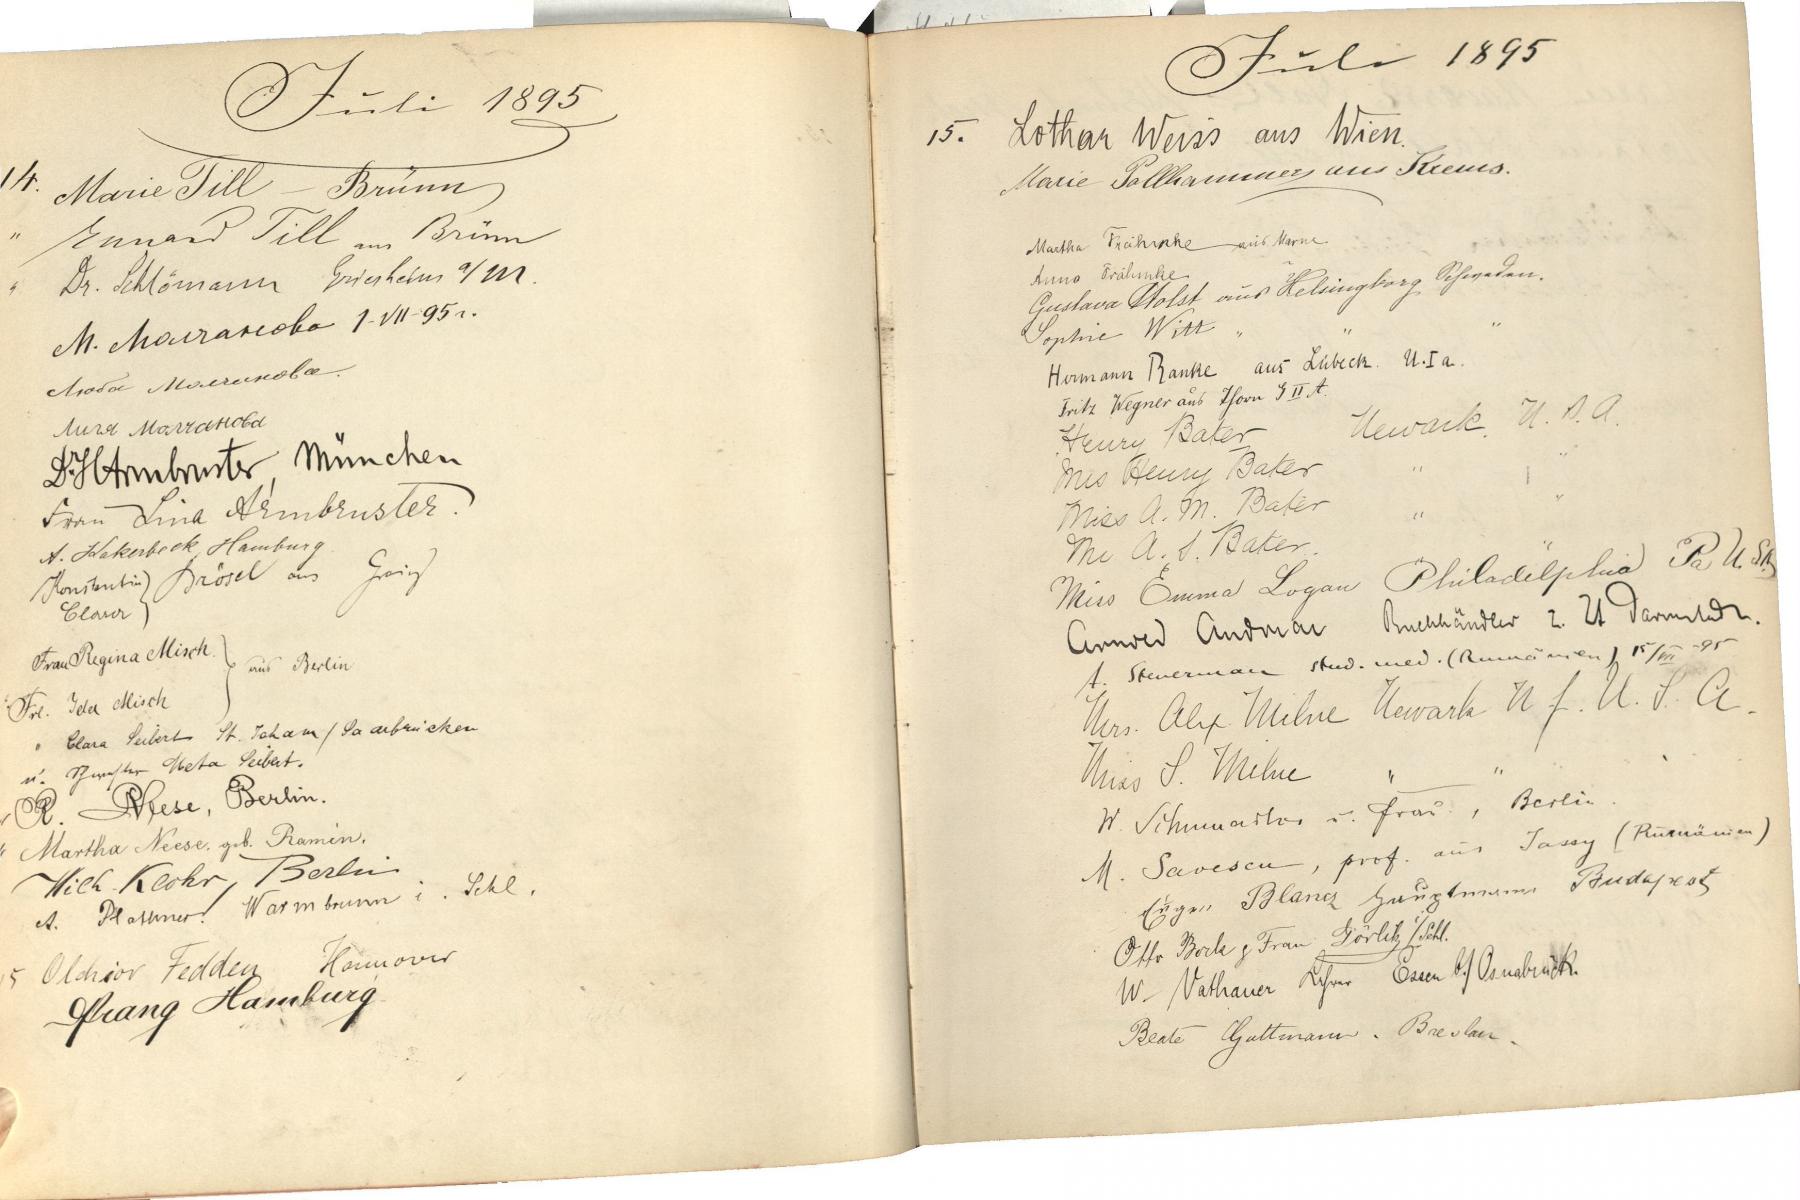 Juli 1895
14. Marie Till – Brünn
" Eduard Till aus Brünn
" Dr. Schlömann Griesheim a/M.
М. Молчанова 1-VII-95 г.
Люба Молчанова.
Лиза Молчанова
Dr H Armbruster, München
Frau Lina Armbruster.
A. Kakerbeck, Hamburg
Konstantin } Brösel aus Greiz
Clara }
Frau Regina Misch } aus Berlin
Frl. Ida Misch
" Clara Seibert St. Johann / Saarbrücken
u. Schwester Meta Seibert.
R. Neese, Berlin.
" Martha Neese. geb. Ramin.
Wilh. Klohr, Berlin
A. Plathner. Warmbrunn i. Schl.
15 Fedden Hannover
Prang Hamburg
Juli 1895
15. Lothar Weiss aus Wien.
Marie Pollhammer aus Krems.
Martha Frähmke aus Marne
Anna Frähmke
Gustava Holst aus Helsingborg Schweden.
Sophie Witt " " "
Hermann Ranke aus Lübeck. U.I a.
Fritz Wegner aus Thorn G II A.
Henry Bater Newark. U. S. A.
Mrs Henry Bater " "
Miss A. M. Bater " "
Mr A. S. Bater.
Miss Emma Logan Philadelphia Pa U.S.A.
Arnold Buchhändler z. Zt Darmstadt.
A. Steuerman stud. med. (Rumänien) 15/VII -95
Mrs. Alex Milne Newark N J. U. S. A.
Miss S. Milne " "
W. u. Frau, Berlin.
M. Savescu, prof. aus Jassy (Rumänien)
Eugen Blancz Hauptmann Budapest
Otto Bork & Frau Görlitz i/Schl.
W. Vathauer Lehrer Essen b/ Osnabrück.
Beate Guttmann. Breslau.